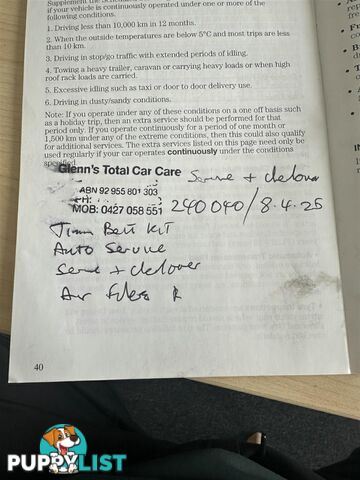 Supplement the
if your vehicle is continuously operated under one or more of the
following conditions.
1. Driving less than 10,000 km in 12 months.
2. When the outside temperatures are below 5°C and most trips are less
than 10 km.
3. Driving in stop/go traffic with extended periods of idling.
4. Towing a heavy trailer, caravan or carrying heavy loads or when high
roof rack loads are carried.
5. Excessive idling such as taxi or door to door delivery use.
6. Driving in dusty/sandy conditions.
Note: If you operate under any of these conditions on a one off basis such
as a holiday trip, then an extra service should be performed for that
period only. If you operate continuously for a period of one month or
1,500 km under any of the extreme conditions, then this could also qualify
for additional services. The extra services listed on this page need only be
used regularly if your car operates continuously under the conditions
specified.
Glenn's Total Car Care
ABN 92 955 801 303
PH:
MOB: 0427 058 551
240040/8.4.25
Belt KIT
Auto Service
Air
40
PUPPYLIST